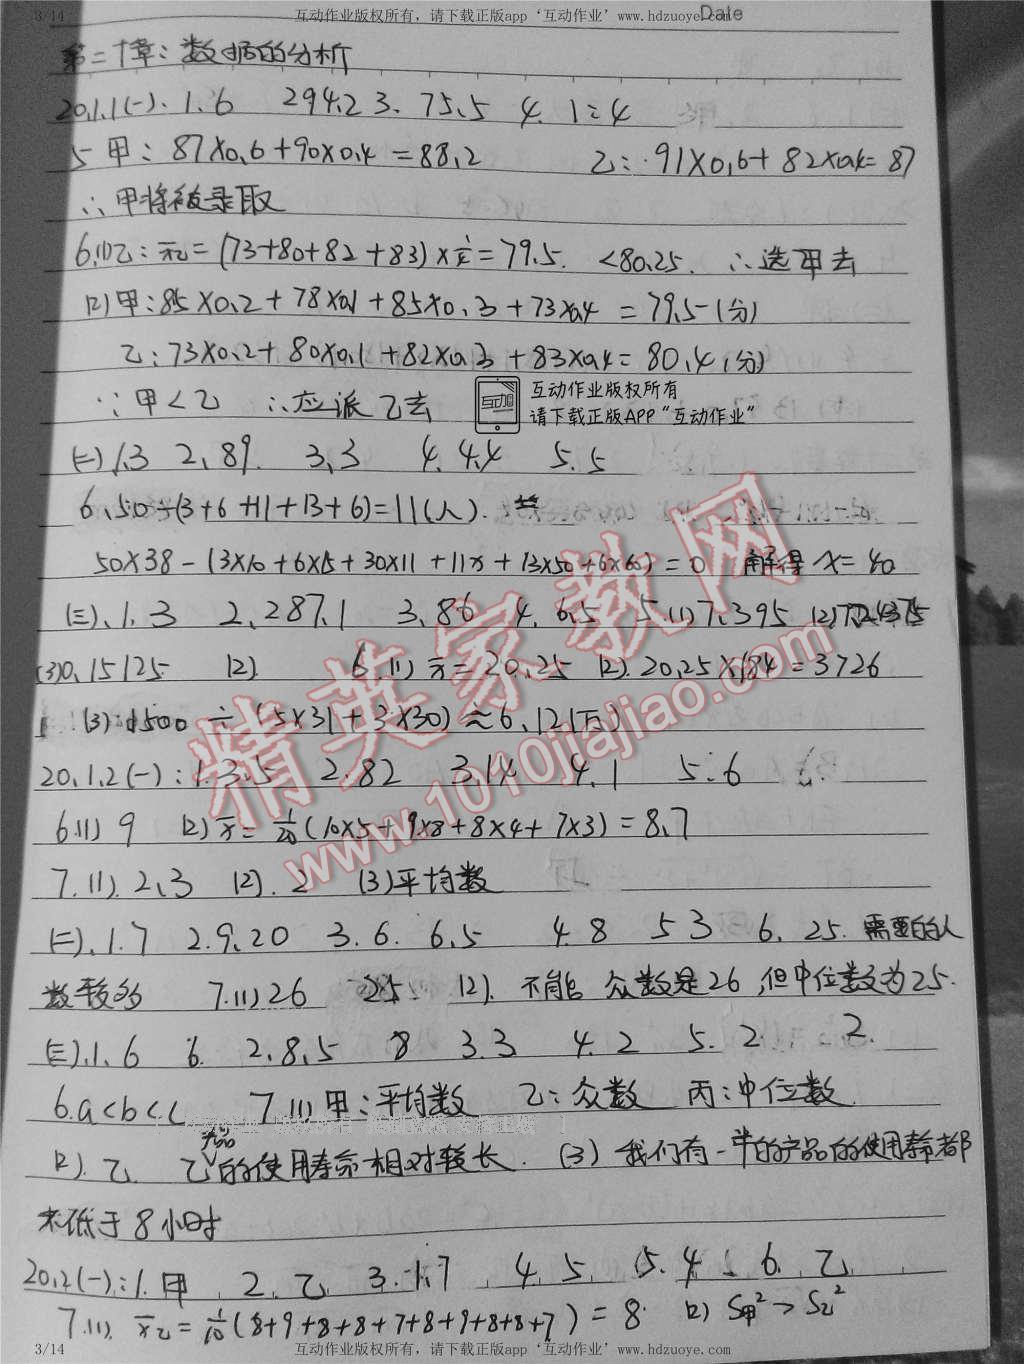 3/14 互动作业版权所有，请下载正版app‘互动作业’www.hdzuoye.com
Date
第二十章：数据的分析
20.1.1(一).1.6 2 94.2 3. 75.5 4. 1:4
5 甲：87×0.6+90×0.4=88.2 乙：91×0.6+82×0.4=87
∴甲将被录取
=(73+80+82+83)× =79.5. <80.25. ∴选甲去
(2)甲：85×0.2+78×0.1+85×0.3+73×0.4=79.5(分)
乙：73×0.2+80×0.1+82×0.3+83×0.4=80.4(分)
∵甲<乙 ∴应派乙去
互动作业版权所有
请下载正版APP“互动作业”
(二)1.3 2.89. 3.3 4.4.4 5.5
6.50-(3+6+11+13+6)=11(人).
50×38-(3×10+6×15+30×11+11x+13×50+6×60)=0 解得x=40
(三).1.3 2.287.1 3.86 4.6.5 5.(1)7.395 (2)
(3)0.15125 (2). 6(1) x̄=20.25 (2).20.25×184=3726
(3):1500÷(5×31+3×30)≈6.12(万)
20.1.2(一):1.3.5 2.82 3.14 4.1 5.6
6.(1) 9 (2)x̄=1/20(10×5+9×8+8×4+7×3)=8.7
7.(1).2.3 (2).2 (3)平均数
(二).1.7 2.9.20 3.6. 6.5 4.8 5 3 6. 25. 需要的人
数较多 7.(1)26 25 (2). 不能 众数是26,但中位数为25.
(三).1.6 6. 2.8.5 8 3.3 4.2 5.2 2.
6.a<b<c 7.(1)甲：平均数 乙：众数 丙：中位数
产品
(2).乙 乙的使用寿命相对较长. (3)我们有一半的产品的使用寿命都
不低于8小时
20.2(一):1.甲 2.乙 3.1.7 4.5. 5.4 6.乙
7.(1). x̄乙=1/10(8+9+8+8+7+8+9+8+8+7)=8 (2) S甲²>S乙²
精英家教网
www.1010jiajiao.com
3/14 互动作业版权所有，请下载正版app‘互动作业’www.hdzuoye.com